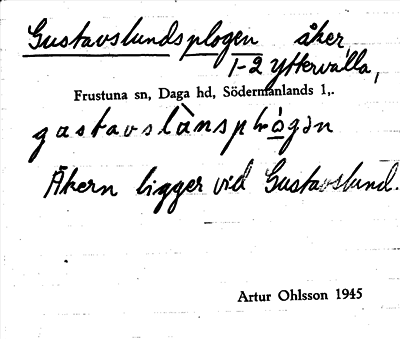 Gustavslundsplogen åker,
1-2 Yttervalla,
Frustuna sn, Daga hd, Södermanlands l.
Åkern ligger vid Gustavslund.
Artur Ohlsson 1945